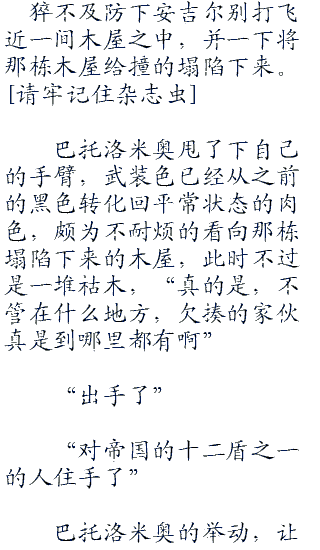 猝不及防下安吉尔别打飞
近一间木屋之中，并一下将
那栋木屋给撞的塌陷下来。
[请牢记住杂志虫]
巴托洛米奥甩了下自己
的手臂，武装色已经从之前
的黑色转化回平常状态的肉
色，颇为不耐烦的看向那栋
塌陷下来的木屋，此时不过
是一堆枯木，“真的是，不
管在什么地方，欠揍的家伙
真是到哪里都有啊”
“出手了”
“对帝国的十二盾之一
的人住手了”
巴托洛米奥的举动，让